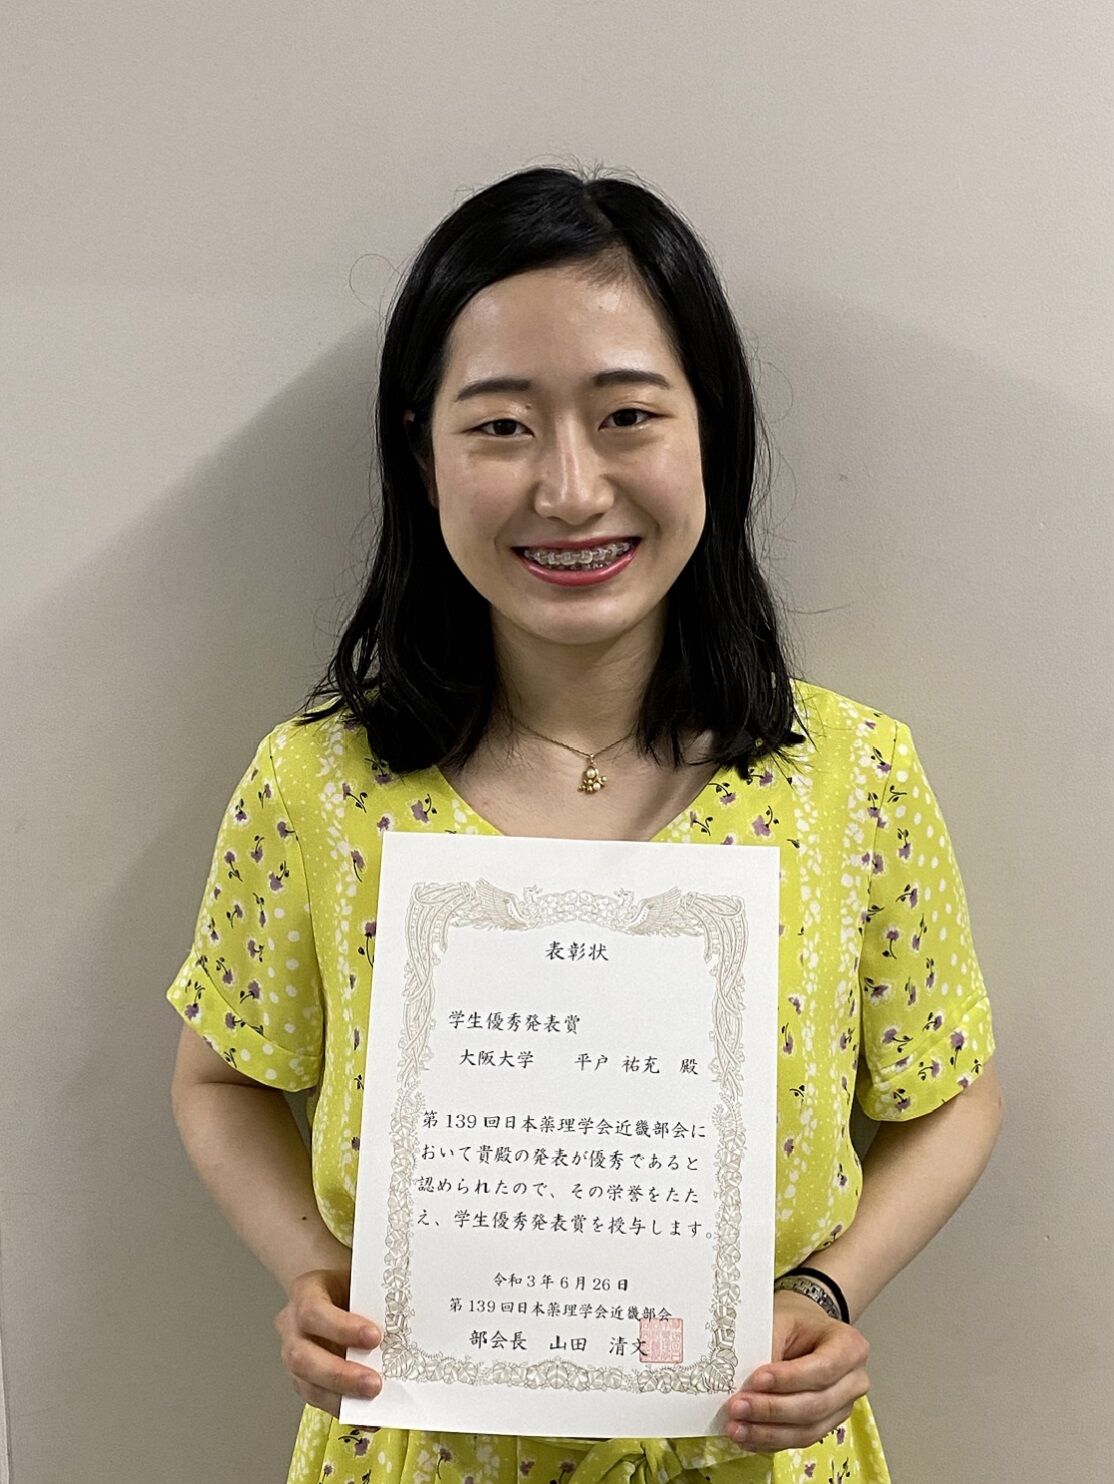 表彰状
学生優秀発表賞
大阪大学 平戸 祐充 殿
第139回日本薬理学会近畿部会に
おいて貴殿の発表が優秀であると
認められたので、その栄誉をたた
え、学生優秀発表賞を授与します。
令和3年6月26日
第139回日本薬理学会近畿部会
部会長 山田 清文